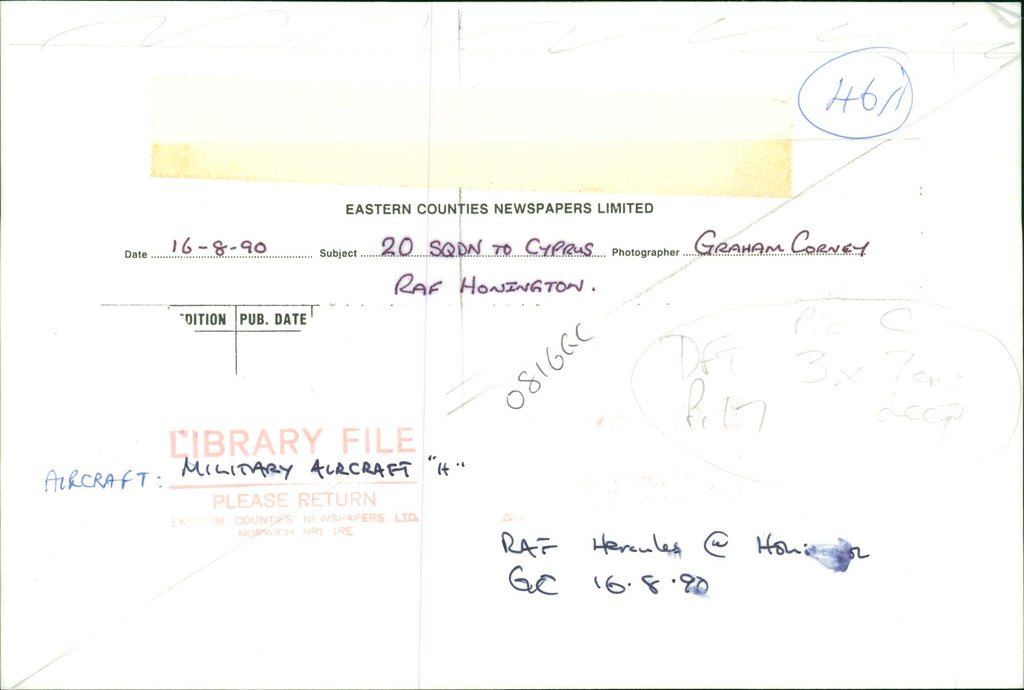 46/1
EASTERN COUNTIES NEWSPAPERS LIMITED
Date 16-8-90 Subject 20 SQDN TO CYPRUS Photographer GRAHAM CORNEY
RAF HONINGTON.
DITION PUB. DATE
0816GC
Pic C
DFT 3 x 7cms
deep
LIBRARY FILE
AIRCRAFT: MILITARY AIRCRAFT "H"
PLEASE RETURN
EASTERN COUNTIES NEWSPAPERS LTD.
NORWICH NR1 1RE
RAF Hercules @ Honington
GC 16.8.90